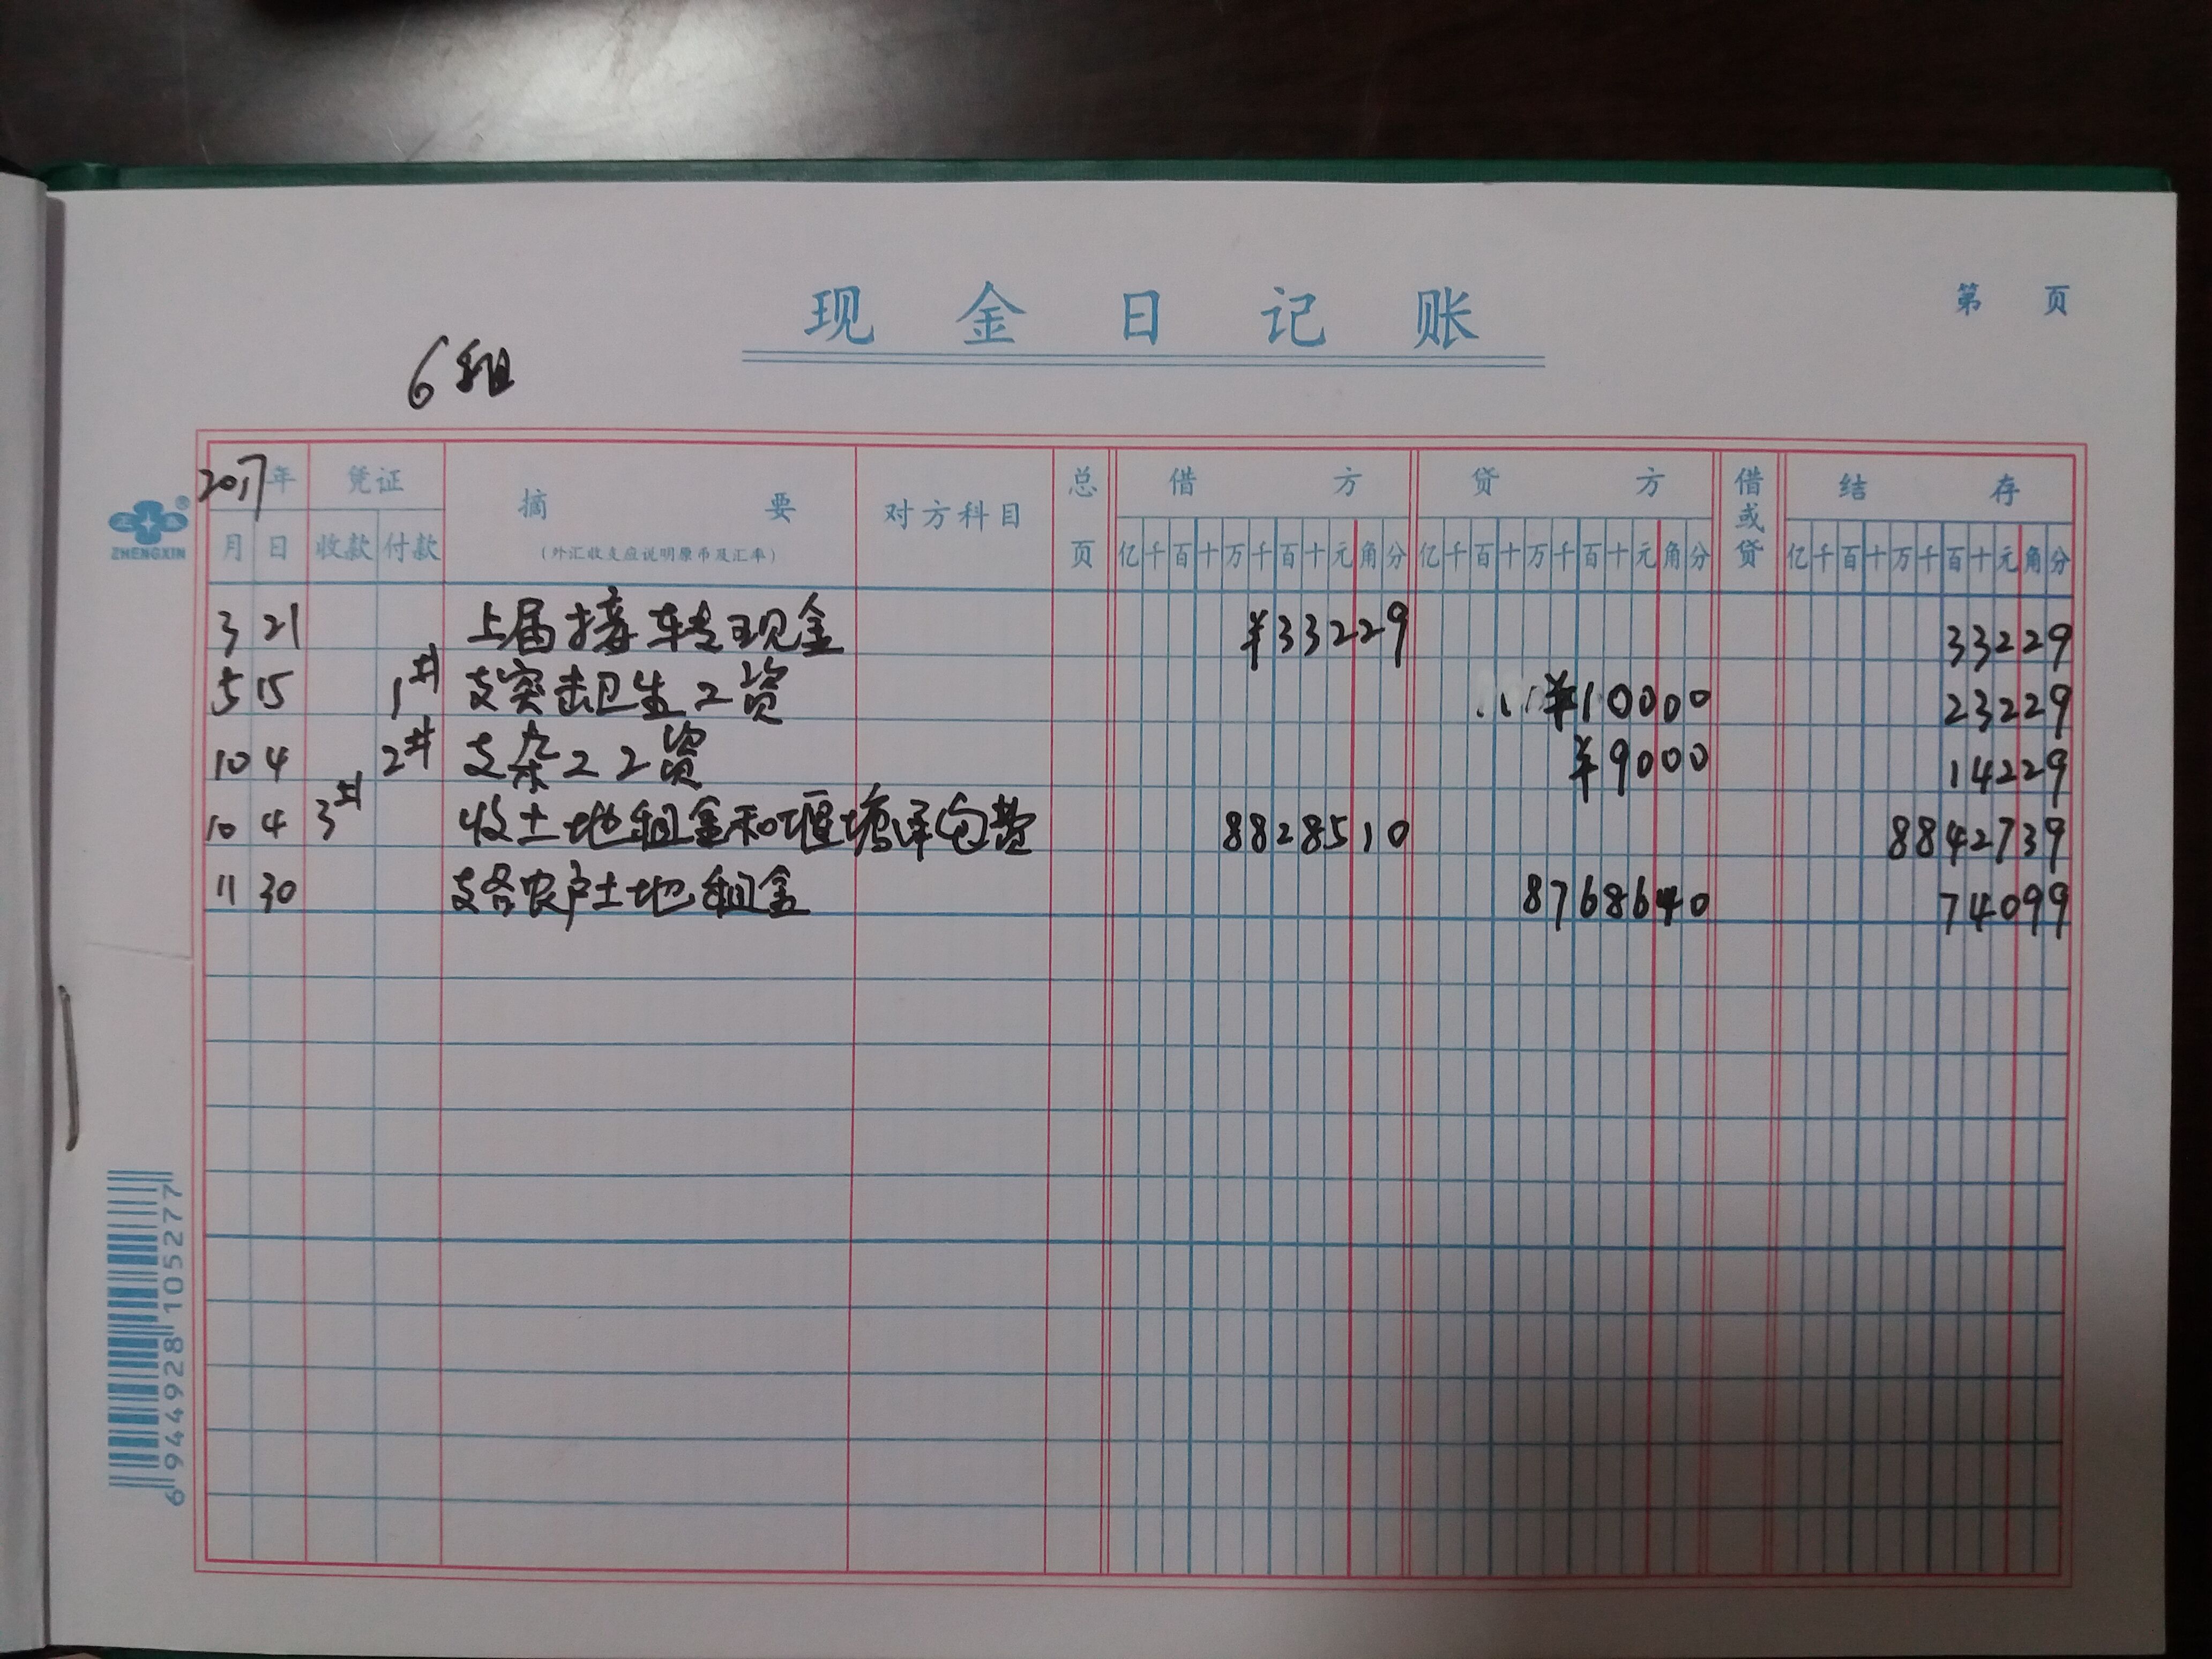 现金日记账
第 页
6组
2017年 凭证 摘要 对方科目 总页 借方 贷方 借或贷 结存
月 日 收款 付款 (外汇收支应说明原币及汇率) 亿千百十万千百十元角分 亿千百十万千百十元角分 亿千百十万千百十元角分
3 21 上届接转现金 ¥33229 33229
5 15 1# 支突击卫生工资 ¥10000 23229
10 4 2# 支杂工工资 ¥9000 14229
10 4 3# 收土地租金和堰塘承包费 8828510 8842739
11 30 支各农户土地租金 8768640 74099
ZHENGXIN
6944928105277